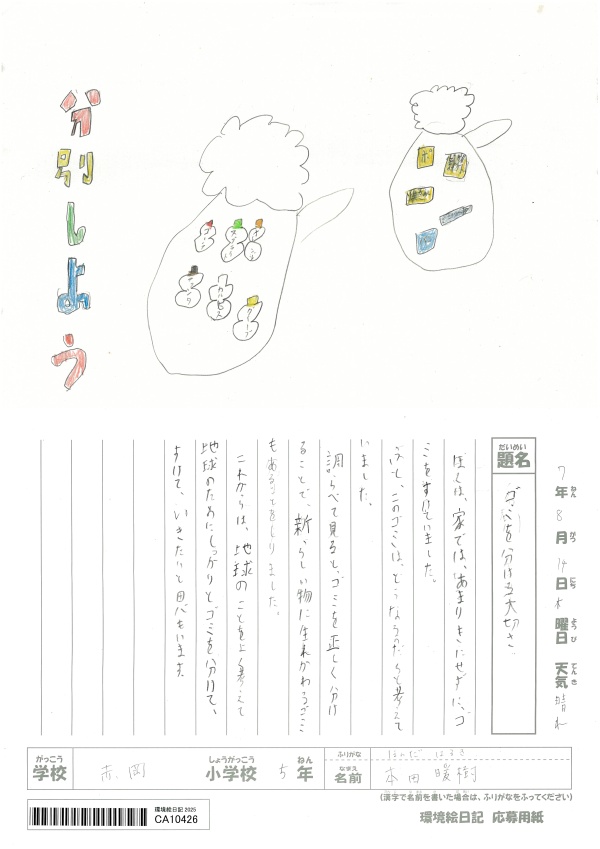 分別しよう
7年8月14日木曜日 天気晴れ
ねん がつ にち ようび てんき
だいめい
題名
ゴミを分ける大切さ
ぼくは、家では、あまりきにせずに、ゴ
ミをすてていました。
このゴミは、どうなるのだろうと考えて
いました。
調らべて見ると、ゴミを正しく分け
ることで、新らしい物に生れかわるゴミ
もあるこてをしりました。
これからは、地球のことをよく考えて
地球のためにしっかりとゴミを分けて、
すてて、いきたいと思もいます
がっこう
学校
赤岡
しょうがっこう
小学校
5
ねん
年
ふりがな
ほんだ はるき
なまえ
名前
本田暖樹
(漢字で名前を書いた場合は、ふりがなをふってください)
環境絵日記 2025
CA10426
環境絵日記 応募用紙